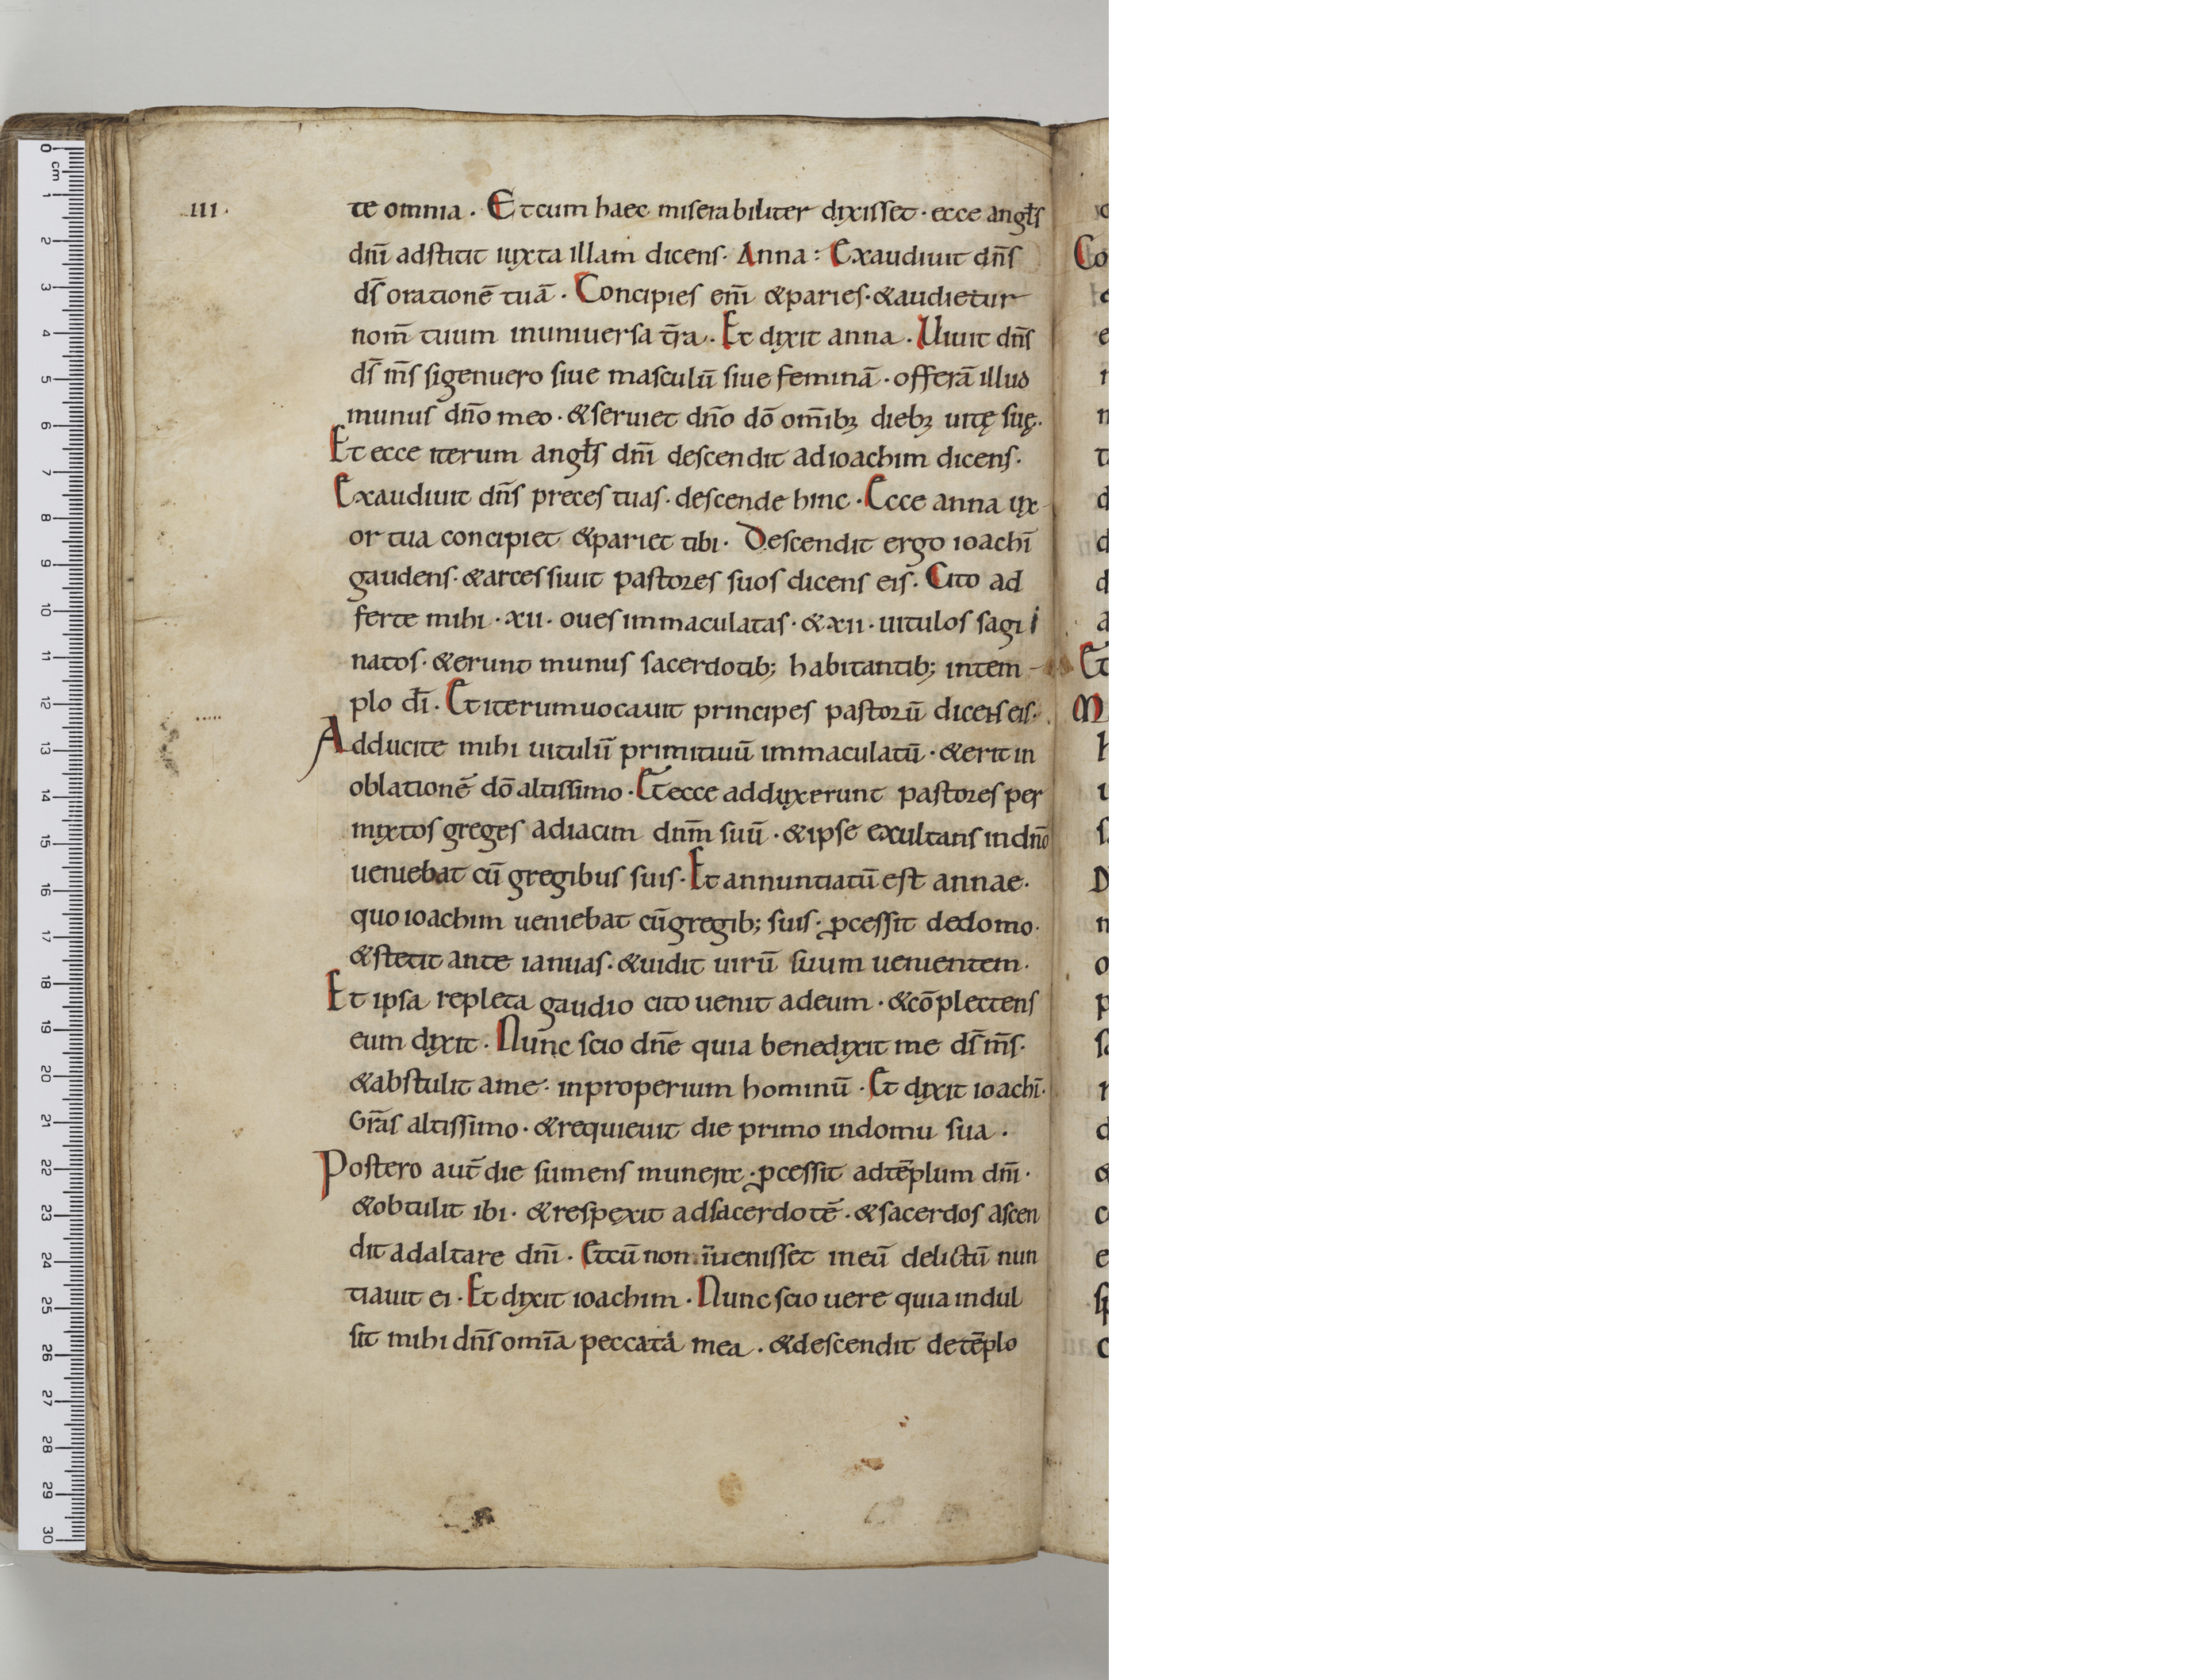 .III.
te omnia · Et cum haec miserabiliter dixisset · ecce angł̄s
dn̄i adstitit iuxta illam dicens · Anna : Exaudiuit dn̄s
ds̄ orationē tuā · Concipies eni̅ & paries · & audietur
nom̄ tuum in uniuersa t̄ra · Et dixit anna · Uiuit dn̄s
ds̄ m̄s si genuero siue masculū siue feminā · offerā illud
munus dn̄o meo · & seruiet dn̄o dō om̄ibꝫ diebꝫ uitę suę ·
Et ecce iterum angł̄s dn̄i descendit ad ioachim dicens ·
Exaudiuit dn̄s preces tuas · descende hinc · Ecce anna ux
or tua concipiet & pariet tibi · Descendit ergo ioachī
gaudens · & arcessiuit pastores suos dicens eis · Cito ad
ferte mihi · xii · oues immaculatas · & xii · uitulos sagi
natos · & erunt munus sacerdotib; habitantib; in tem-
plo dī · Et iterum uocauit principes pastorū dicens eis ·
Adducite mihi uitulū primitiuū immaculatū · & erit in
oblationē dō altissimo · Et ecce adduxerunt pastores per
mixtos greges ad iacim dnm̄ suū · & ipse exultans in dn̄o
ueniebat cū gregibus suis · Et annuntiatū est annae ·
quo ioachim ueniebat cū gregib; suis · ꝓcessit de domo ·
& stetit ante ianuas · & uidit uirū suum uenientem ·
Et ipsa repleta gaudio cito uenit ad eum · & cōplectens
eum dixit · Nunc scio dn̄e quia benedixit me ds̄ m̄s ·
& abstulit a me · inproperium hominū · Et dixit ioachī ·
Gr̄as altissimo · & requieuit die primo in domu sua ·
Postero aut̄ die sumens · ꝓcessit ad tēplum dn̄i ·
& obtulit ibi · & respexit ad sacerdotē · & sacerdos ascen
dit ad altare dn̄i · Et cū non īuenisset in eū delictū nun
tiauit ei · Et dixit ioachim · Nunc scio uere quia indul
sit mihi dn̄s omīa peccata mea · & descendit de tēplo